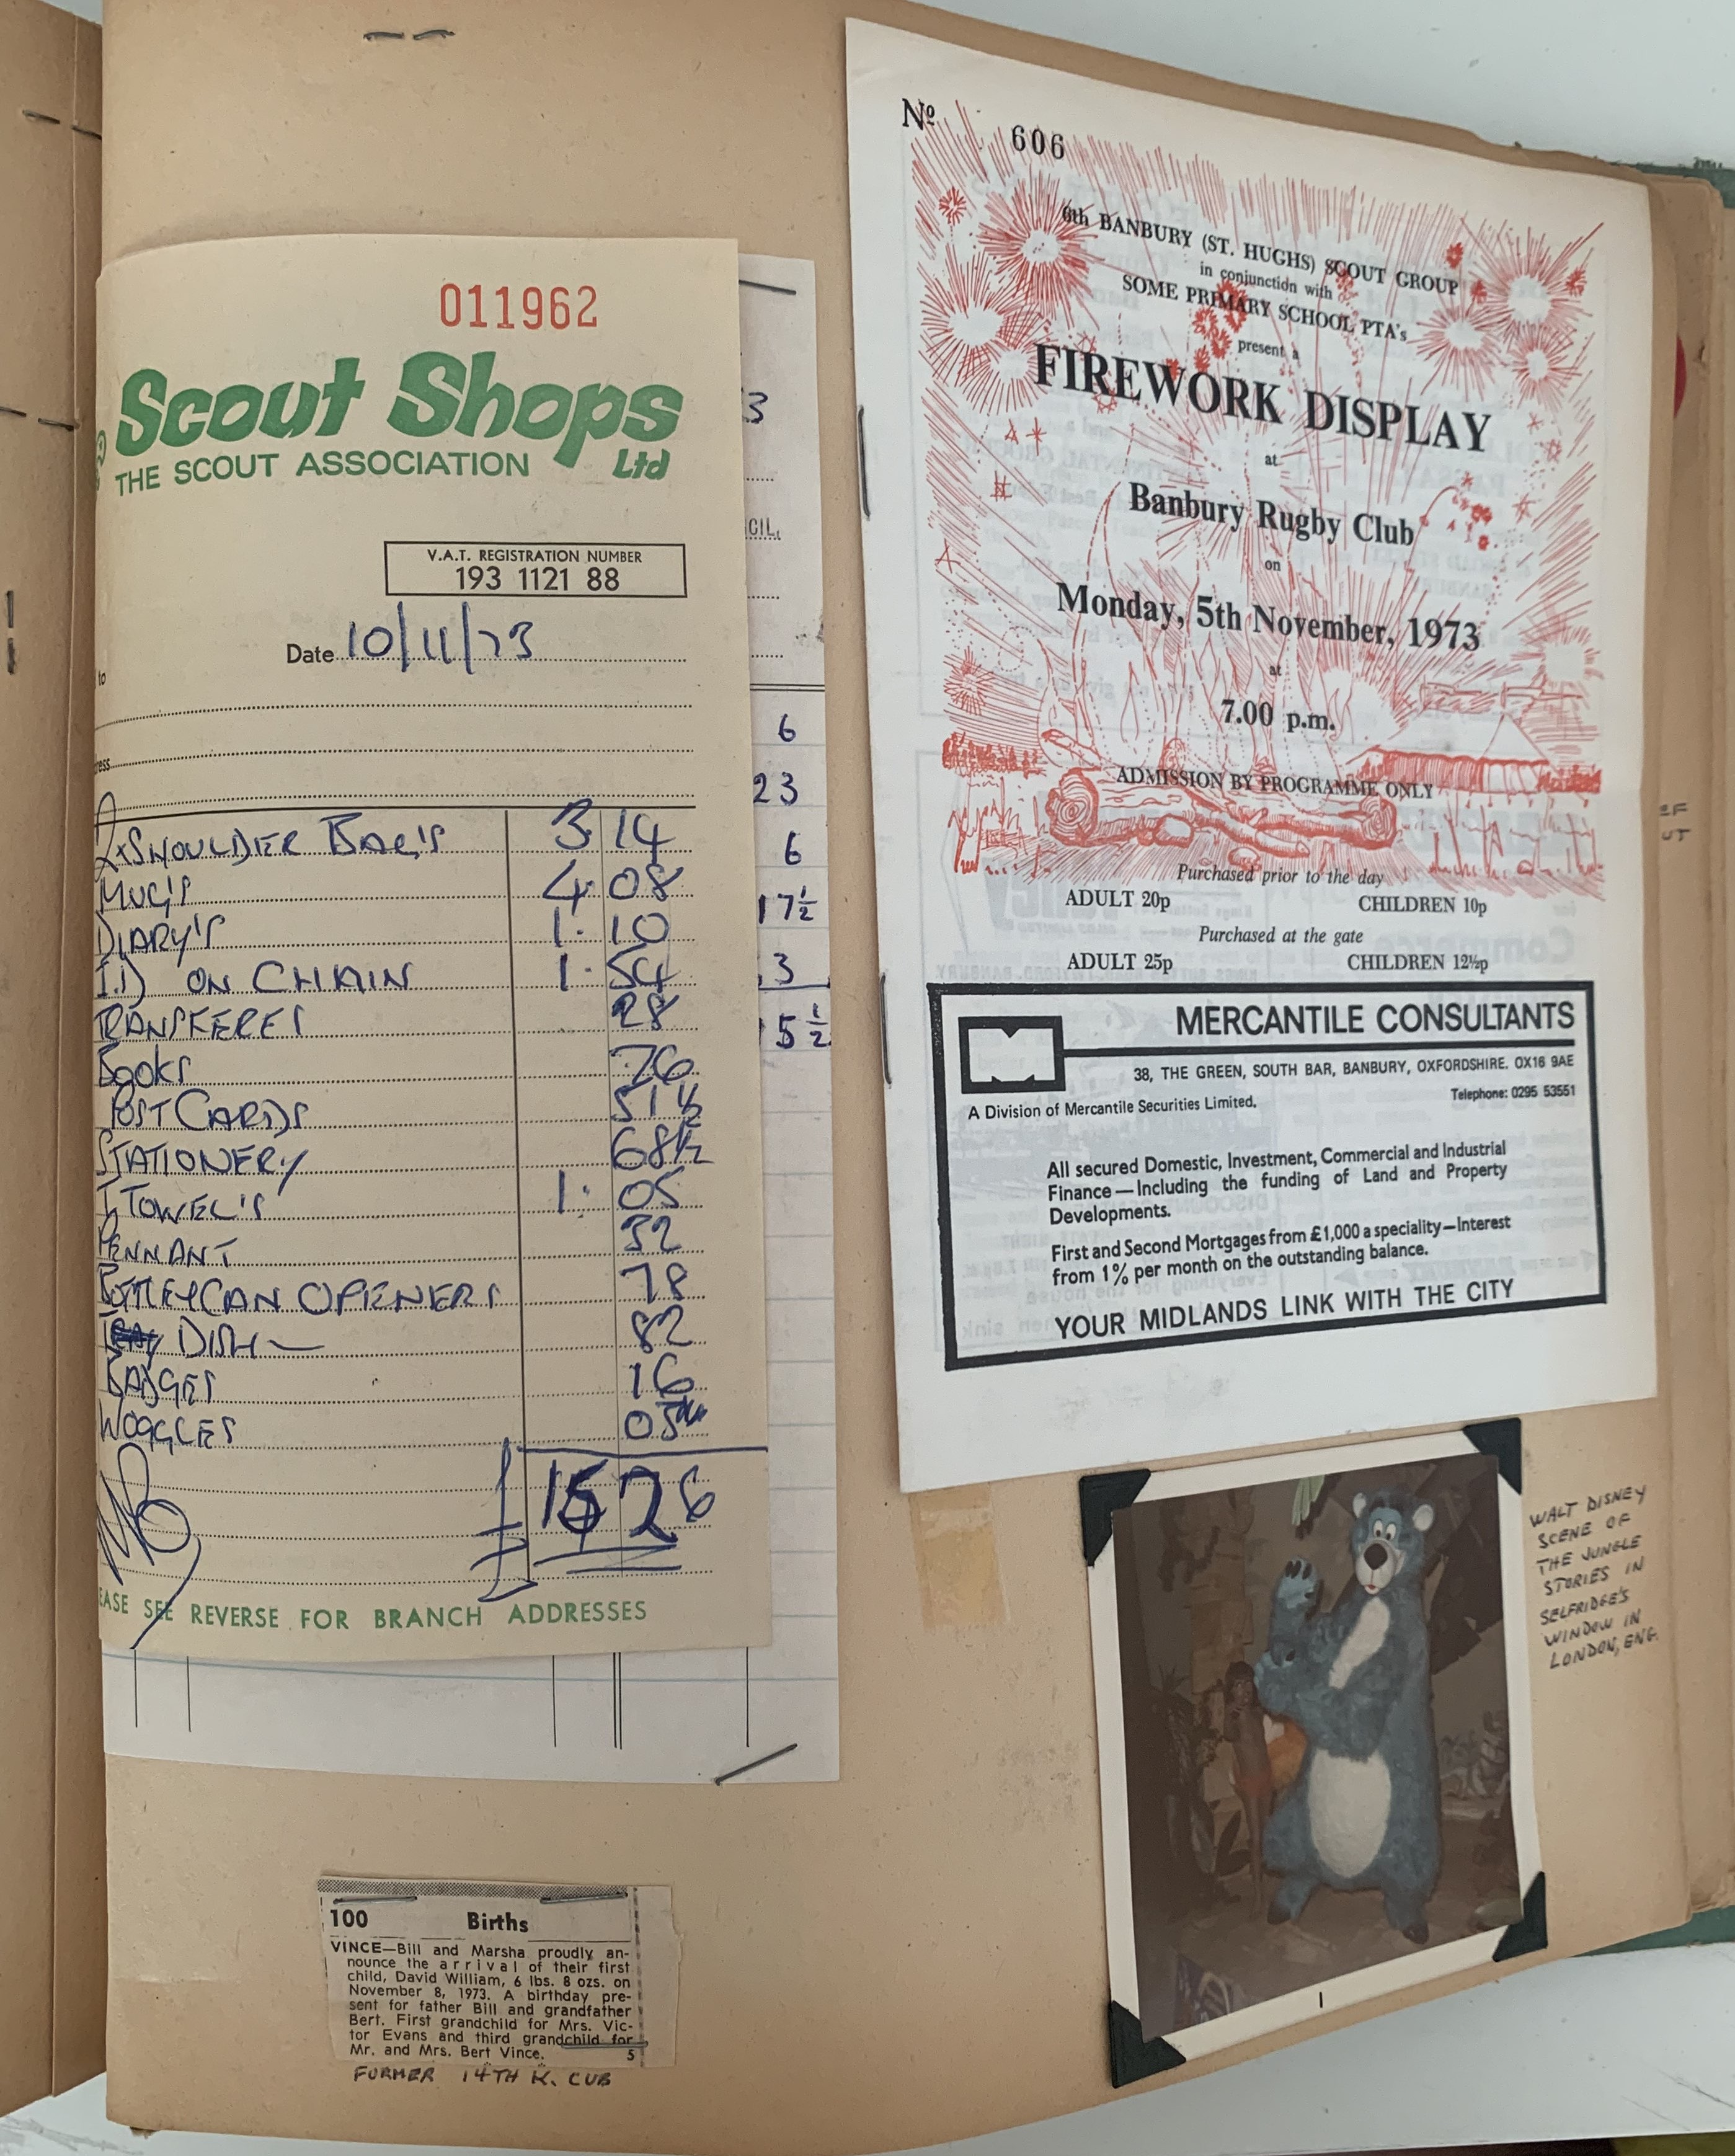 011962
Scout Shops
Ltd
THE SCOUT ASSOCIATION
V.A.T. REGISTRATION NUMBER
193 1121 88
Date 10/11/73
to
ress
2xSHOULDER BAG'S 3 14
MUG'S 4. 08
DIARY'S 1. 10
I.D ON CHAIN 1. 54
TRANSFERES 28
BOOKS 76
POST CARDS 51 ½
STATIONERY 68½
T. TOWEL'S 1. 05
PENNANT 32
BOTTLE/CAN OPENERS 78
DISH 82
BADGES 16
WOGGLES 05
£ 15 26
EASE SEE REVERSE FOR BRANCH ADDRESSES
3
CIL,
6
23
6
17½
3
5½
100 Births
VINCE—Bill and Marsha proudly an-
nounce the arrival of their first
child, David William, 6 lbs. 8 ozs. on
November 8, 1973. A birthday pre-
sent for father Bill and grandfather
Bert. First grandchild for Mrs. Vic-
tor Evans and third grandchild for
Mr. and Mrs. Bert Vince. 5
FORMER 14TH K. CUB
Nº 606
6th BANBURY (ST. HUGHS) SCOUT GROUP
in conjunction with
SOME PRIMARY SCHOOL PTA's
present a
FIREWORK DISPLAY
at
Banbury Rugby Club
on
Monday, 5th November, 1973
at
7.00 p.m.
ADMISSION BY PROGRAMME ONLY
Purchased prior to the day
ADULT 20p CHILDREN 10p
Purchased at the gate
ADULT 25p CHILDREN 12½p
MERCANTILE CONSULTANTS
38, THE GREEN, SOUTH BAR, BANBURY, OXFORDSHIRE. OX16 9AE
Telephone: 0295 53551
A Division of Mercantile Securities Limited.
All secured Domestic, Investment, Commercial and Industrial
Finance—Including the funding of Land and Property
Developments.
First and Second Mortgages from £1,000 a speciality—Interest
from 1% per month on the outstanding balance.
YOUR MIDLANDS LINK WITH THE CITY
WALT DISNEY
SCENE OF
THE JUNGLE
STORIES IN
SELFRIDGE'S
WINDOW IN
LONDON, ENG.